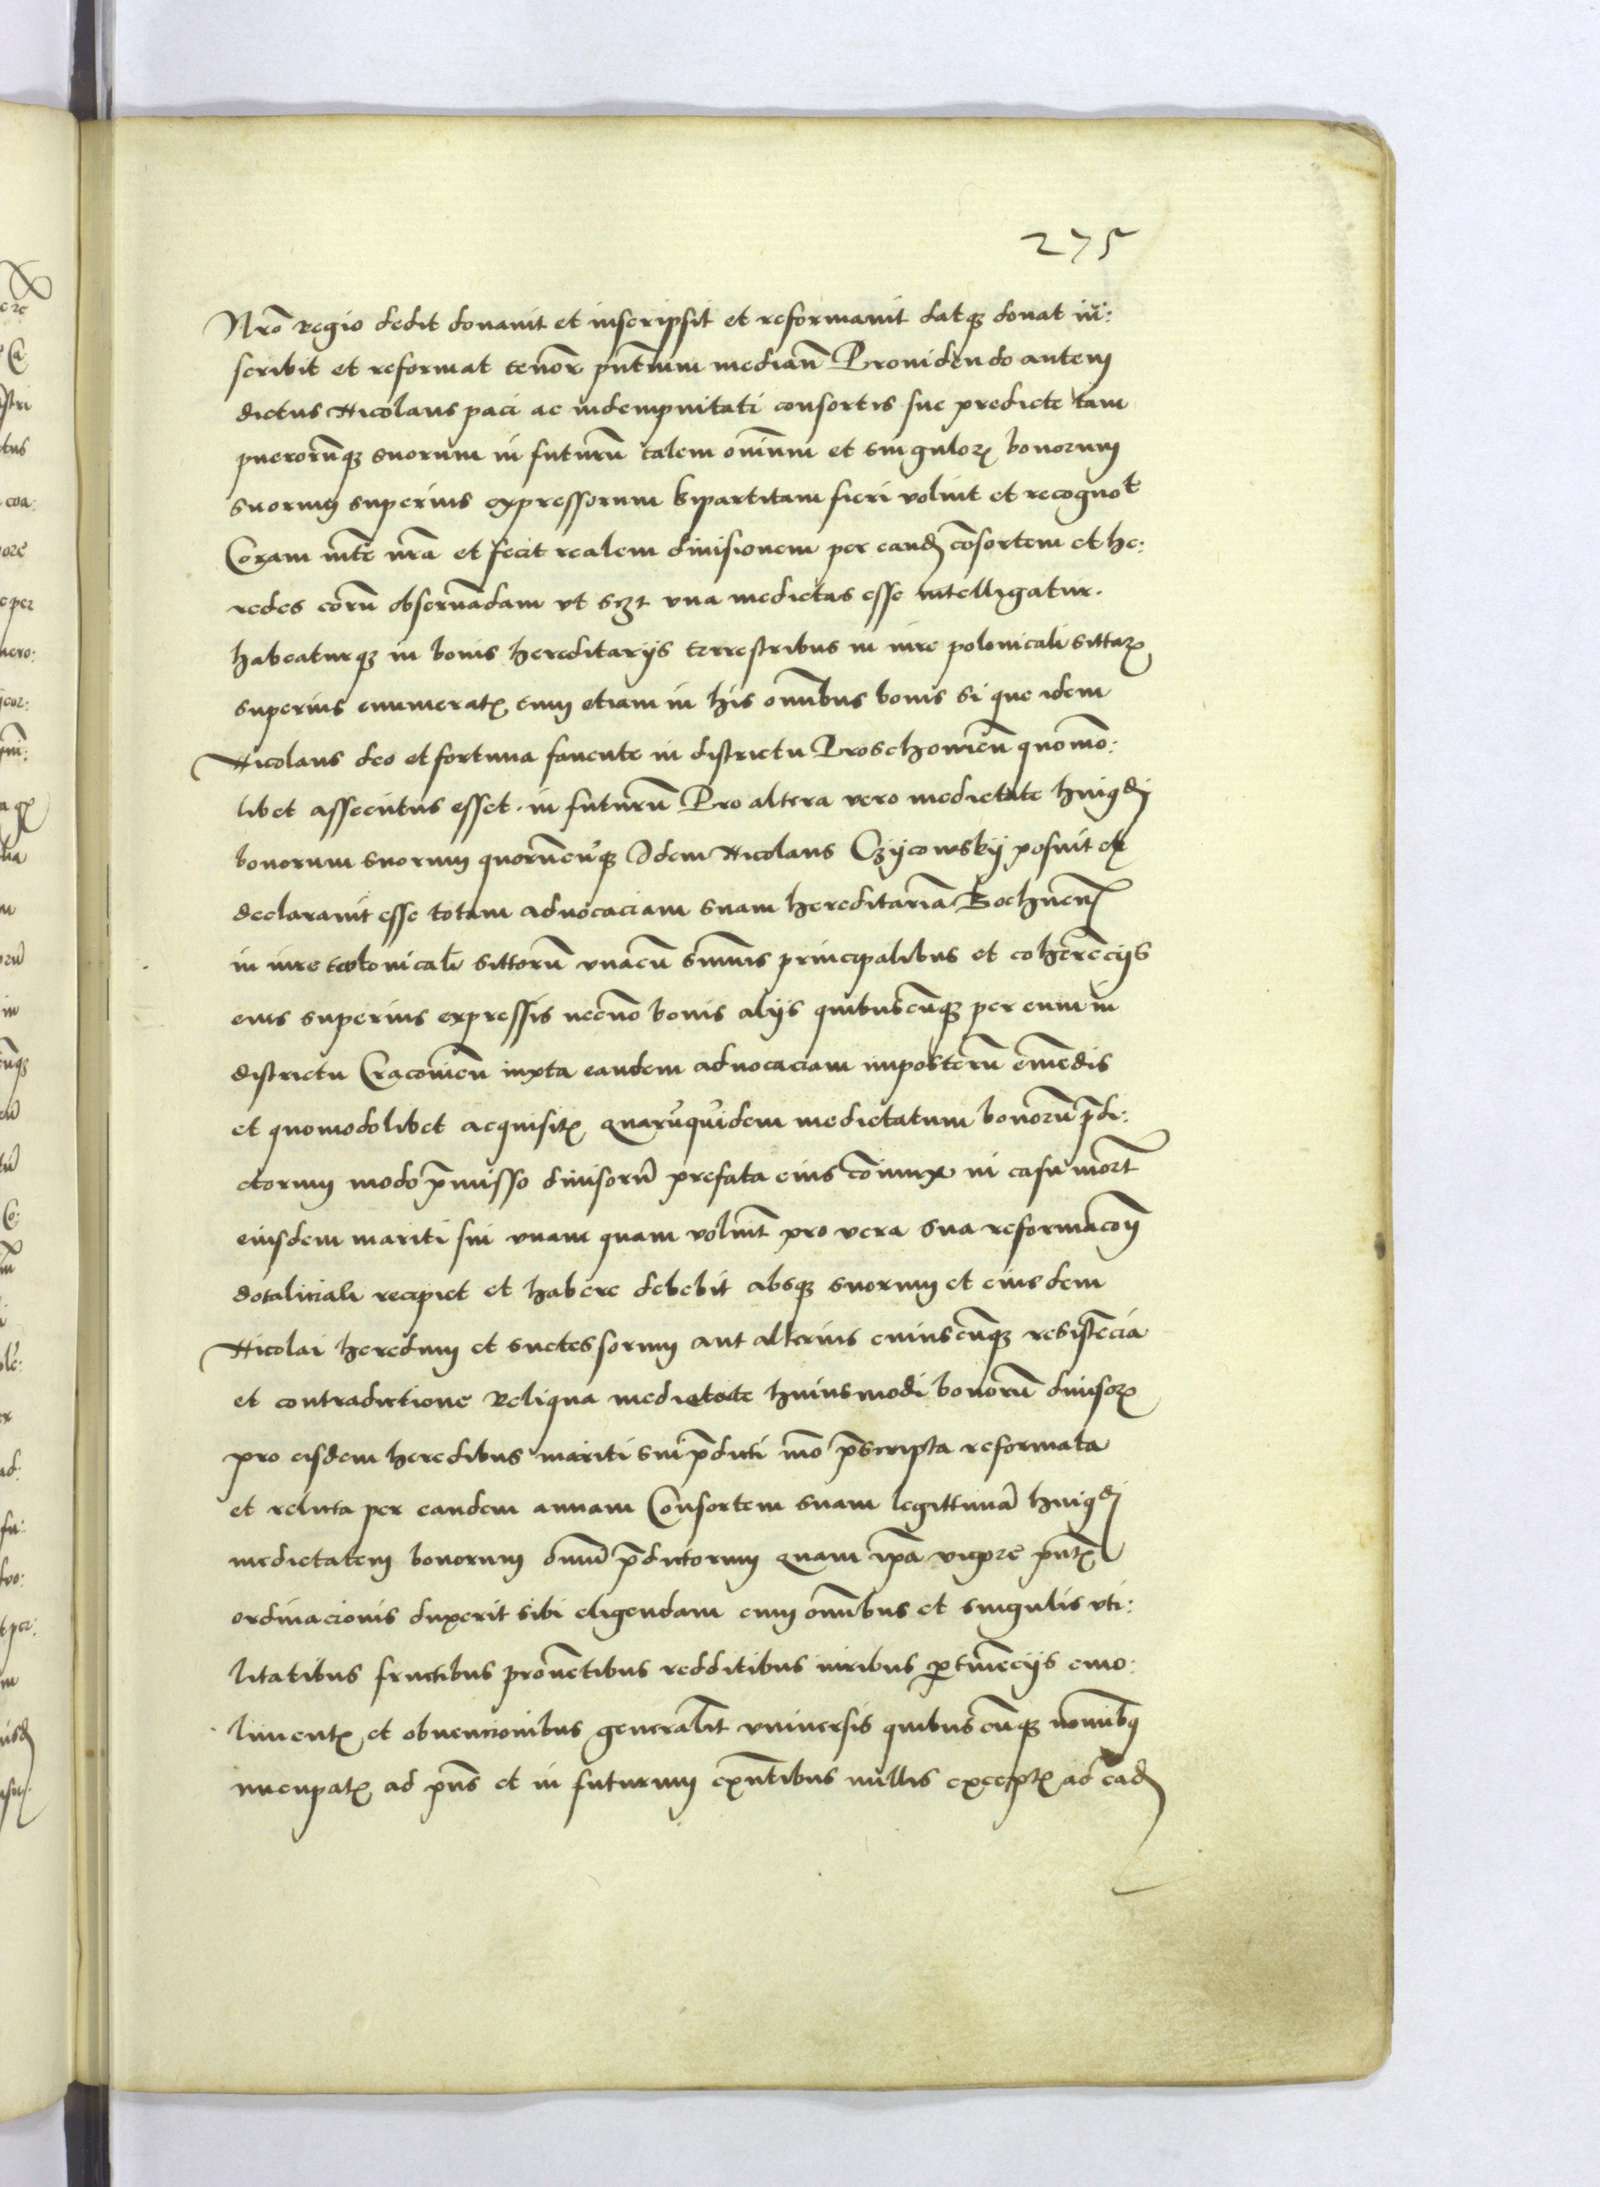 275
Nr̄o regio dedit donavit et inscripsit et reformavit datqꝫ donat in:
scribit et reformat tenor̄ pn̄tium median̄ Providendo autem
dictus Nicolaus paci ac indempnitati consortis sue predicte tam
puerorūqꝫ suorum in futurū talem om̄ium et singuloꝝ bonorum
suorum superius expressorum bipartitam fieri voluit et recognot
Coram mt̄e nr̄a et fecit realem divisionem per eand cōsortem et he:
redes eorū observādam ut scꝫ una medietas esse intelligatur.
habeaturqꝫ in bonis hereditarijs terrestribus in iure polonicali sittaꝝ
superius enumeratꝭ cum etiam in his om̄ibus bonis si que idem
Nicolaus deo et fortuna favente in districtu Proschovien̄ quomo:
libet assecutus esset. in futurū Pro altera vero medietate huiꝰdi
bonorum suorum quorūcūqꝫ Idem Nicolaus Czijcowskij posuit et
declaravit esse totam advocaciam suam hereditariā Bochnen̄
in iure teotonicali sittorū unacū sum̄is principalibus et coherēcijs
eius superius expressis necno bonis alijs quibuscūqꝫ per eum in
districtu Cracovien̄ iuxta eandem advocaciam imposterū emēdis
et quomodolibet acquisitꝭ quarūquidem medietatum bonorū p̄di:
ctorum modo p̄misso divisorū prefata eius cōiunx in casu mort̄
eiusdem mariti sui unam quam voluit̄ pro vera sua reformacōī
dotaliciali recipiet et habere debebit absqꝫ suorum et eiusdem
Nicolai heredum et successorum aut alterius cuiuscūqꝫ resistēcia
et contradictione Reliqua medietate huiusmodi bonorū divisoꝝ
pro eisdem heredibus mariti sui p̄dicti mō p̄scripta reformata
et relicta per eandem annam Consortem suam legittimā huiꝰdi
medietatem bonorum om̄iū p̄dictorum quam ip̄a vigore pn̄tꝭ
ordinacionis duxerit sibi eligendam cum om̄ibus et singulis uti:
litatibus fructibus provētibus redditibus iuribus ꝑtinēcijs emo:
limentꝭ et obvencionibus generalit̄ universis quibuscūqꝫ nomībꝰ
nuncupatꝭ ad pn̄s et in futurum exn̄tibus nullis exceptꝭ ad ead